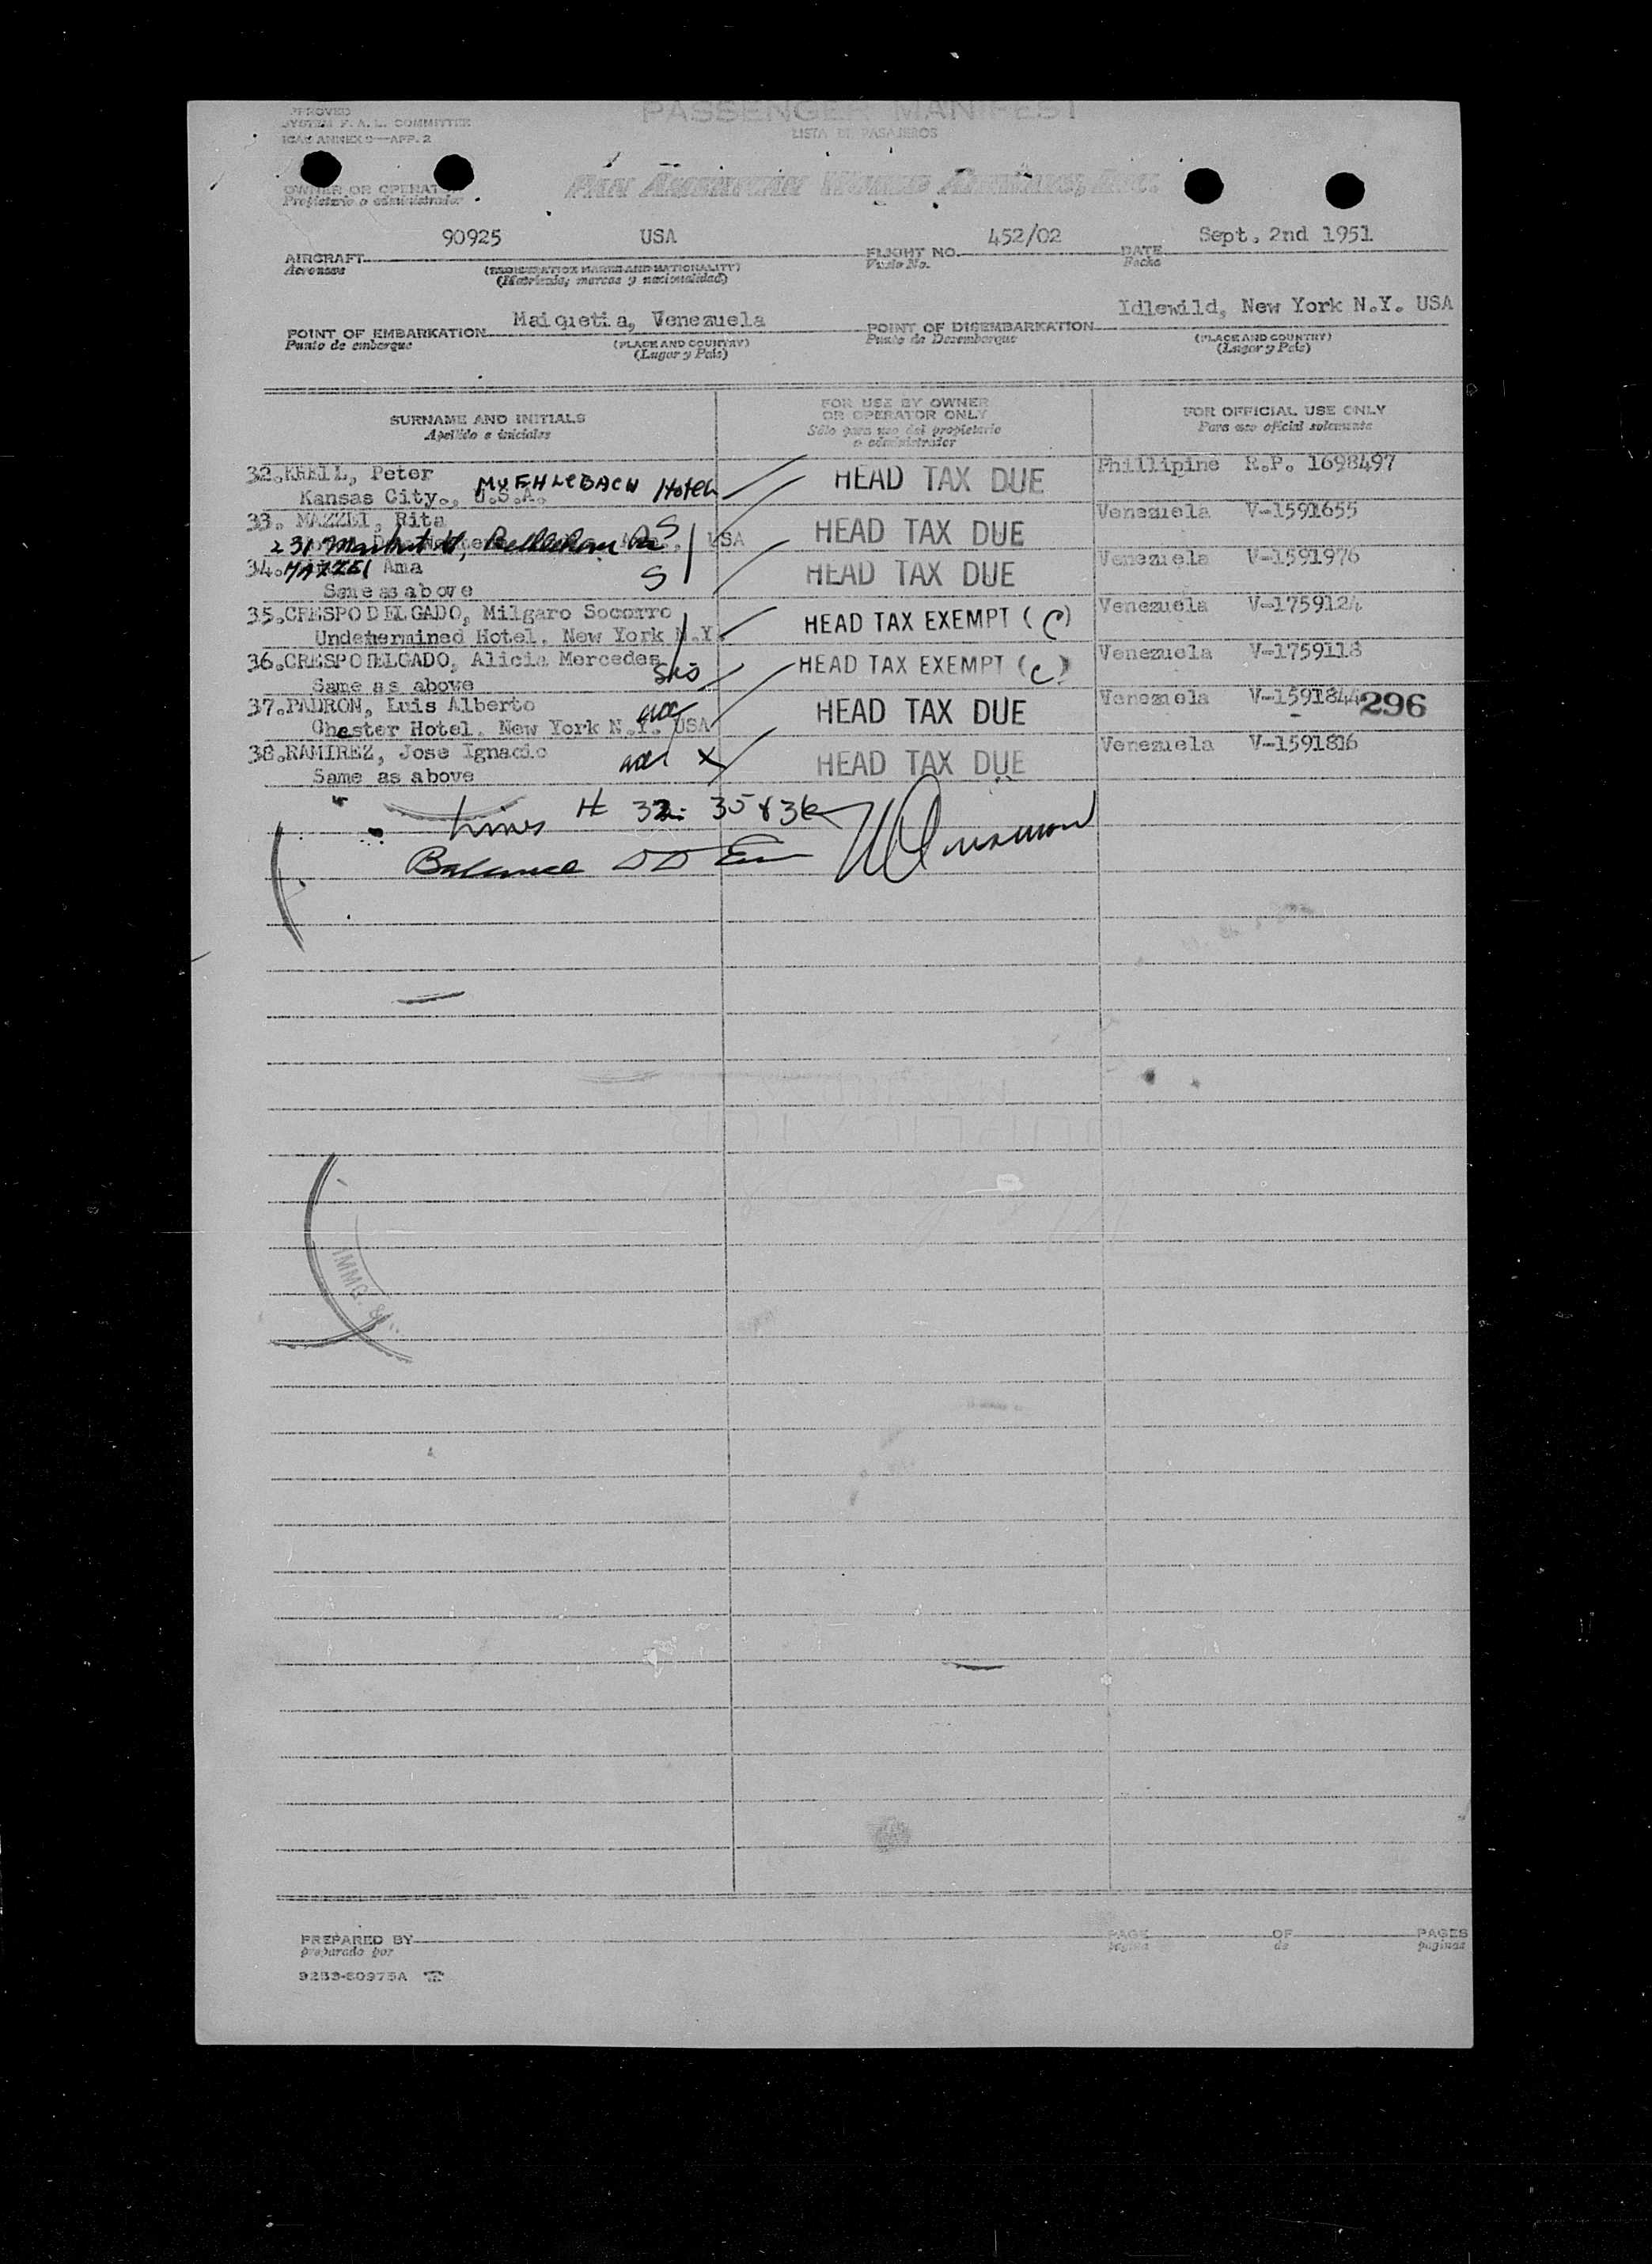 APPROVED
SYSTEM F. A. L. COMMITTEE
ICAO ANNEX 9—APP. 2
PASSENGER MANIFEST
LISTA DE PASAJEROS
OWNER OR OPERATOR
Propietario o administrador
PAN AMERICAN WORLD AIRWAYS, INC.
90925 USA 452/02 Sept, 2nd 1951
AIRCRAFT FLIGHT NO. DATE
Aeronave (REGISTRATION MARKS AND NATIONALITY) Vuelo No. Fecha
(Matrícula, marcas y nacionalidad)
Maiquetia, Venezuela Idlewild, New York N.Y. USA
POINT OF EMBARKATION POINT OF DISEMBARKATION
Punto de embarque (PLACE AND COUNTRY) Punto de Desembarque (PLACE AND COUNTRY)
(Lugar y País) (Lugar y País)
SURNAME AND INITIALS
Apellido e iniciales
FOR USE BY OWNER
OR OPERATOR ONLY
Sólo para uso del propietario
o administrador
FOR OFFICIAL USE ONLY
Para uso oficial solamente
32. Peter HEAD TAX DUE Phillipine R.P. 1698497
Kansas City., U.S.A. MUEHLEBACH Hotel
33. MAZZEI, Rita S HEAD TAX DUE Venezuela V-1591655
231 Market St, USA
34. MAZZEI Ama S HEAD TAX DUE Venezuela V-1591976
Same as above
35.CRESPO DELGADO, Milgaro Socorro HEAD TAX EXEMPT (C) Venezuela V-1759124
Undetermined Hotel, New York N.Y.
36.CRESPO DELGADO, Alicia Mercedes HEAD TAX EXEMPT (C) Venezuela V-1759118
Same as above
37.PADRON, Luis Alberto HEAD TAX DUE Venezuela V-1591844
296
Chester Hotel, New York N.Y. USA
38.RAMIREZ, Jose Ignacio X HEAD TAX DUE Venezuela V-1591816
Same as above
35 & 36
Balance
IMMG. &
PREPARED BY PAGE OF PAGES
preparado por página de páginas
9253-80975A